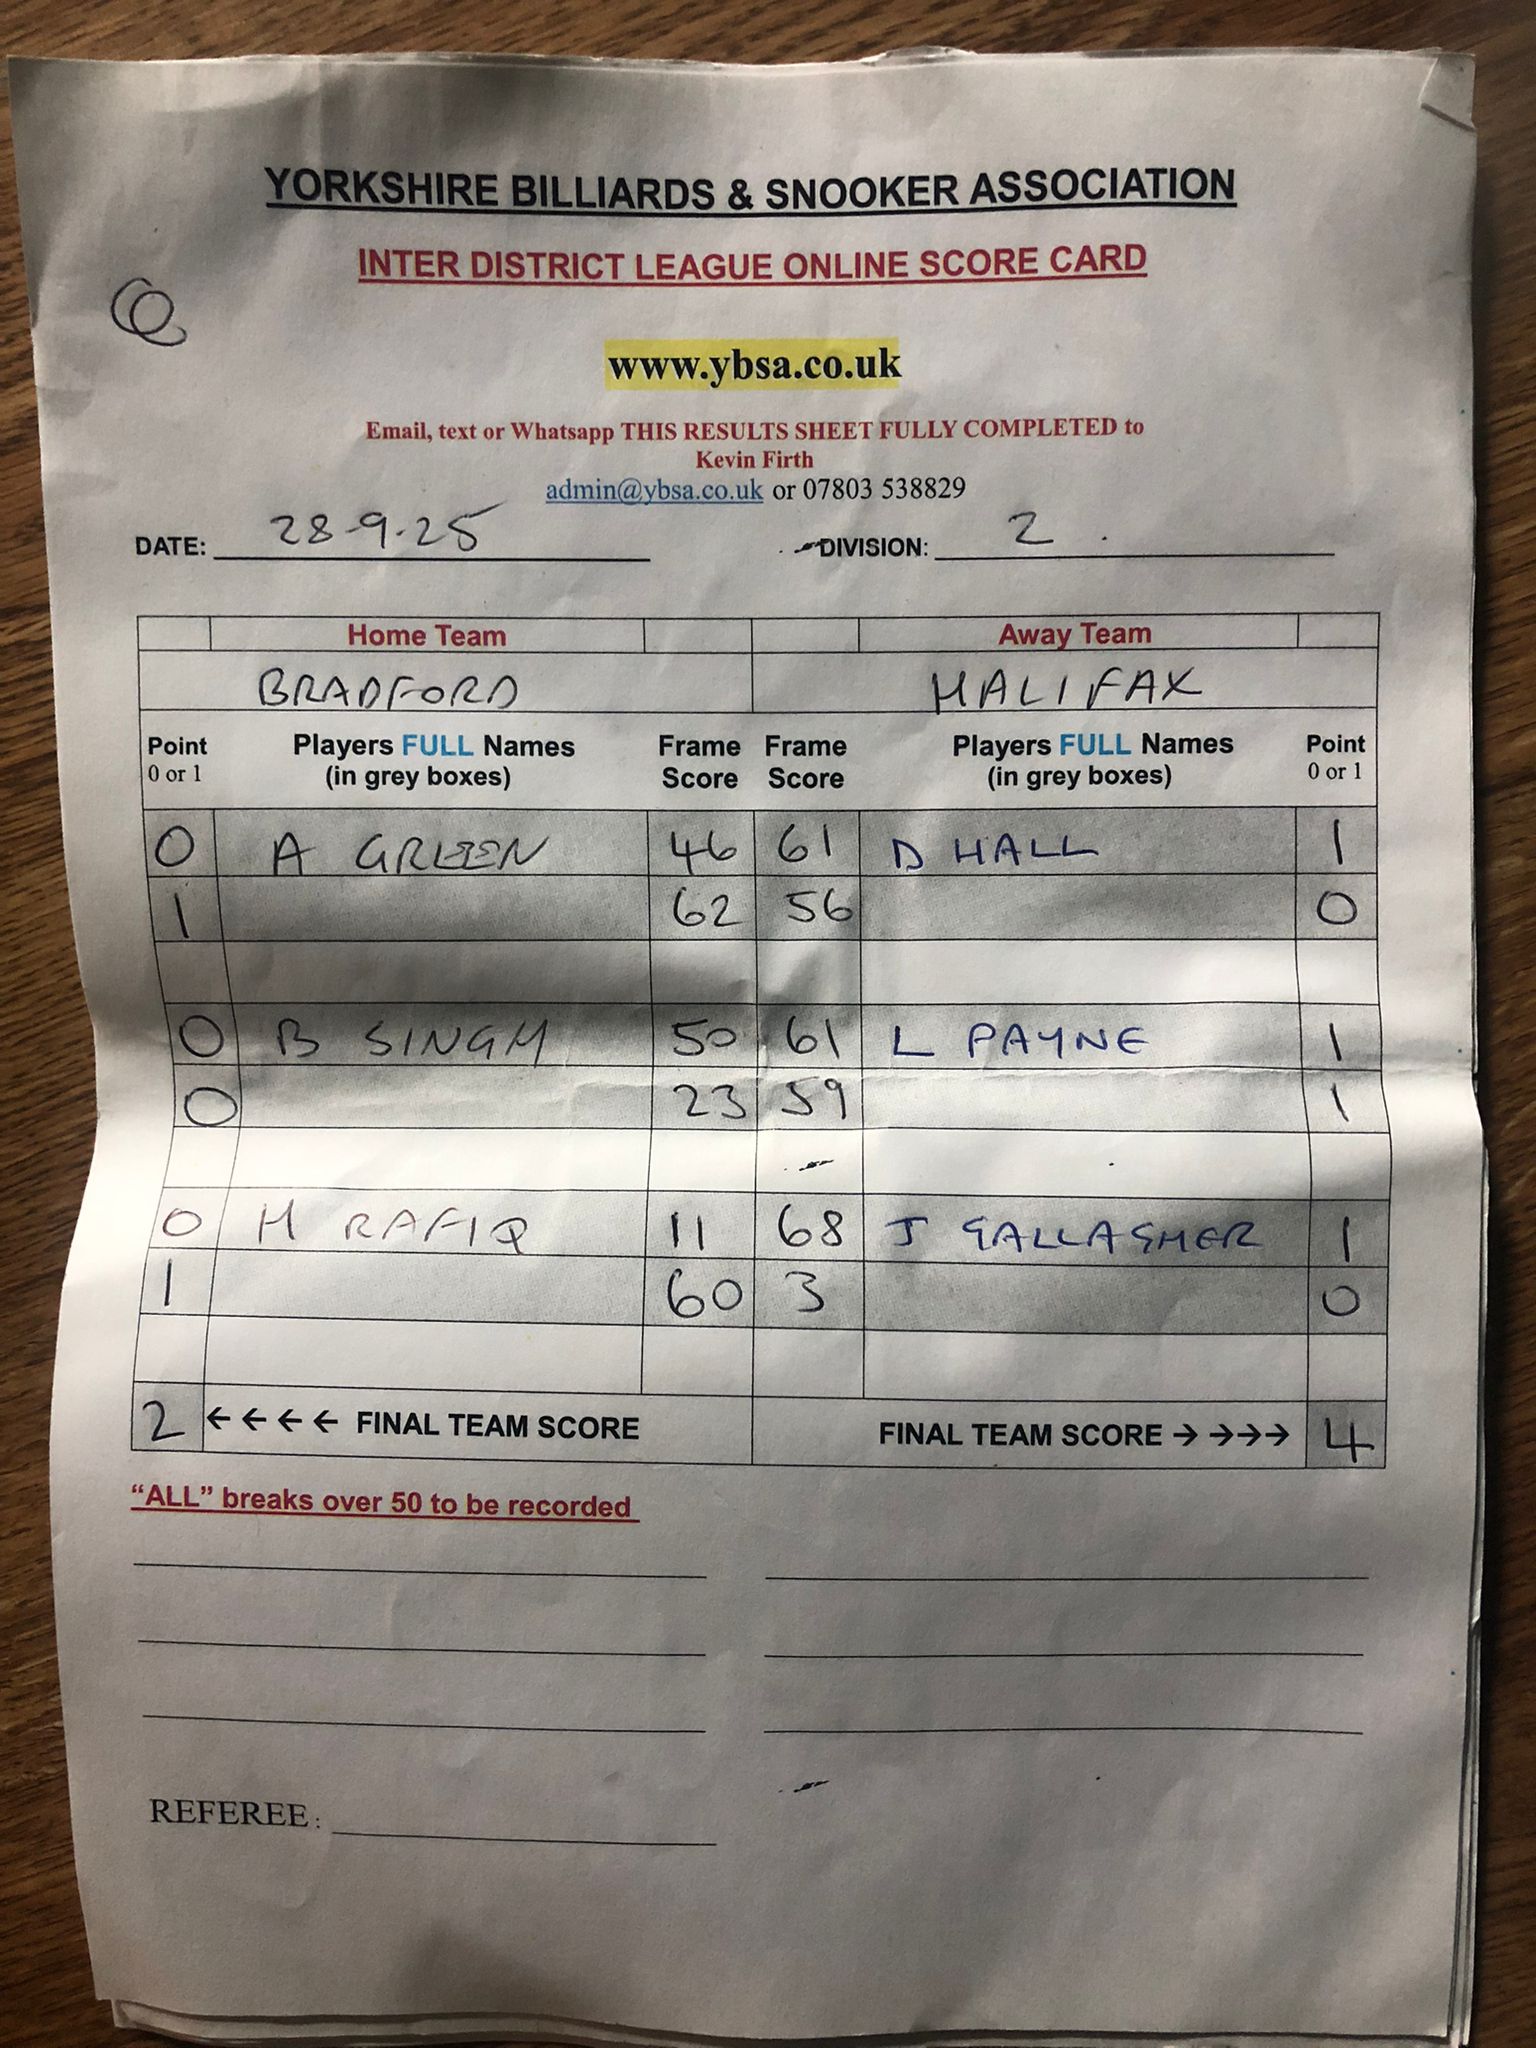 YORKSHIRE BILLIARDS & SNOOKER ASSOCIATION
INTER DISTRICT LEAGUE ONLINE SCORE CARD
www.ybsa.co.uk
Email, text or Whatsapp THIS RESULTS SHEET FULLY COMPLETED to
Kevin Firth
admin@ybsa.co.uk or 07803 538829
DATE: 28-9-25 DIVISION: 2
Home Team Away Team
BRADFORD HALIFAX
Point 0 or 1 Players FULL Names (in grey boxes) Frame Score Frame Score Players FULL Names (in grey boxes) Point 0 or 1
0 A GREEN 46 61 D HALL 1
1 62 56 0
0 B SINGH 50 61 L PAYNE 1
0 23 59 1
0 H RAFIQ 11 68 J GALLAGHER 1
1 60 3 0
2 ←←←← FINAL TEAM SCORE FINAL TEAM SCORE → →→→ 4
“ALL” breaks over 50 to be recorded
REFEREE: